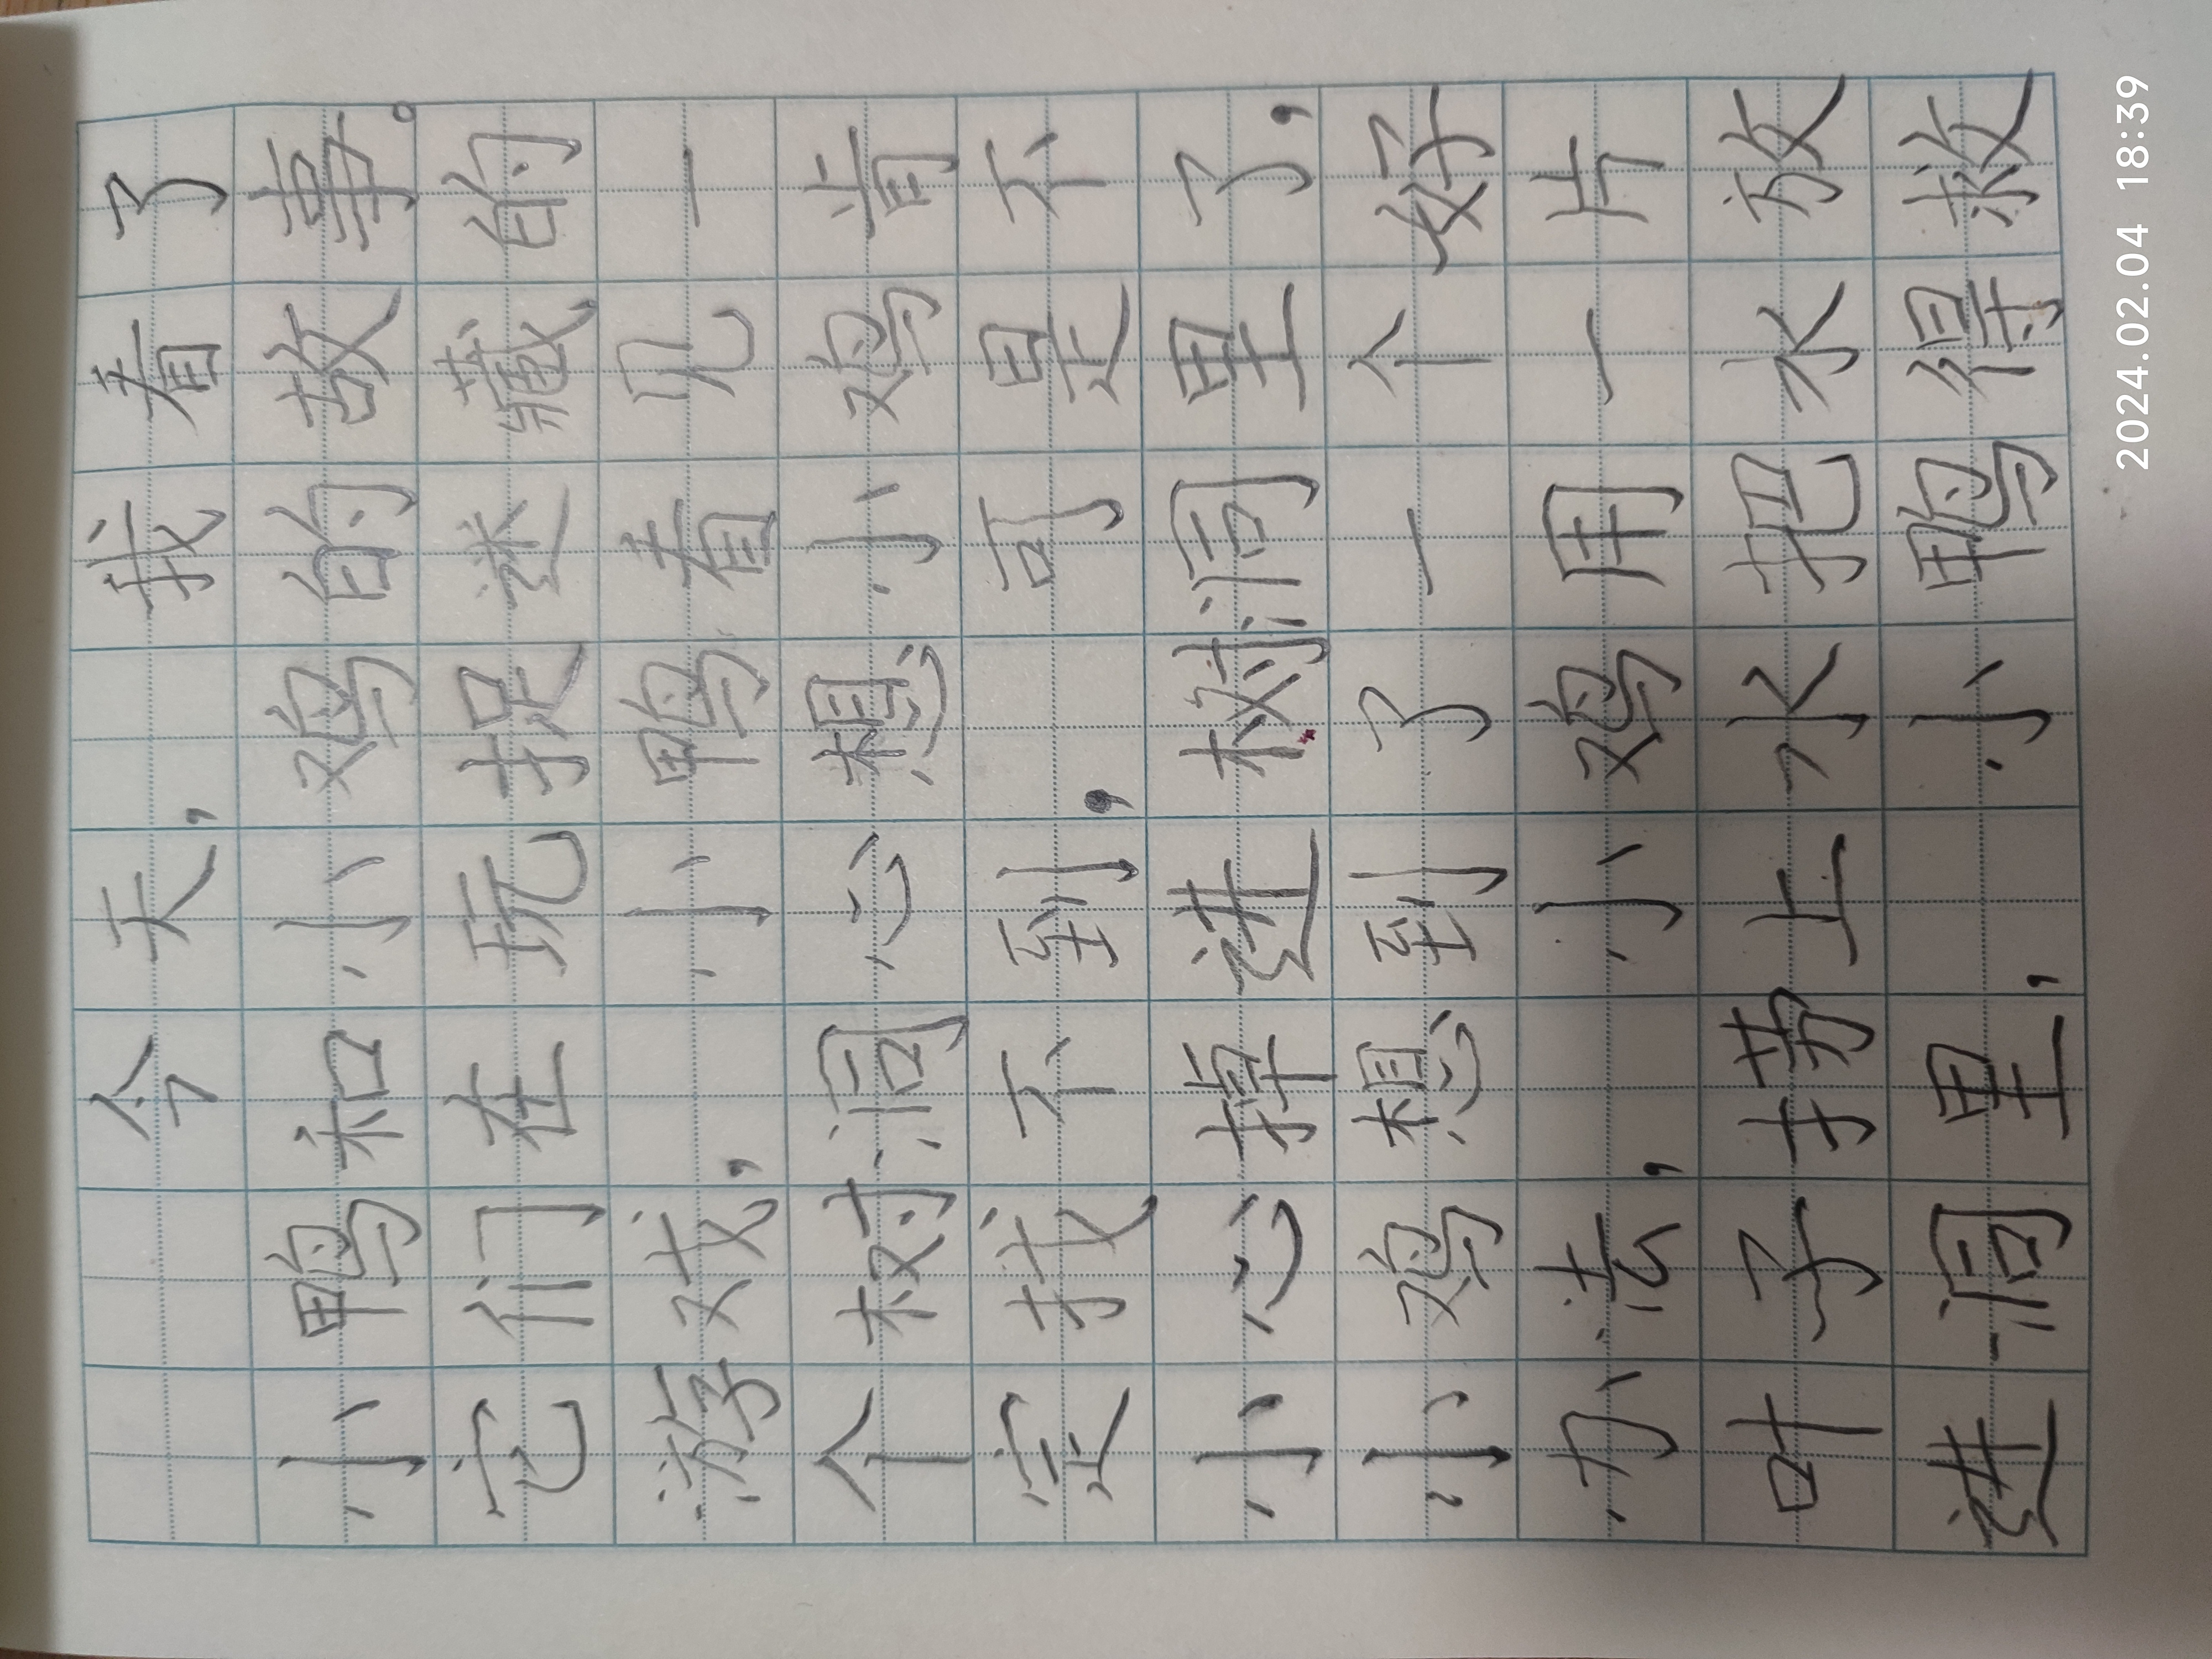 今天，我看了
小鸭和小鸡的故事。
它们在玩捉迷藏的
游戏，小鸭看见一
个树洞心想小鸡肯
定找不到，可是不
小心掉进树洞里了，
小鸡想到了一个好
办法，小鸡用一片
叶子捞上水把水放
进洞里，小鸭得救
2024.02.04 18:39